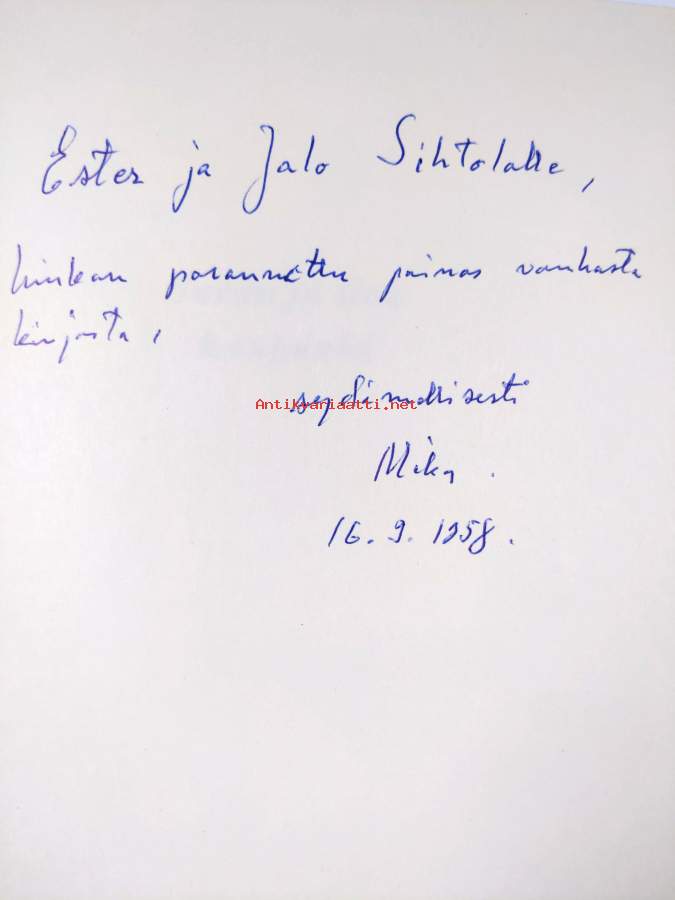 Ester ja Jalo Sihtolalle,
hiukan parannettu painos vanhasta
kirjasta,
sydämellisesti
Antikvariaatti.net
Mika.
16.9.1958.